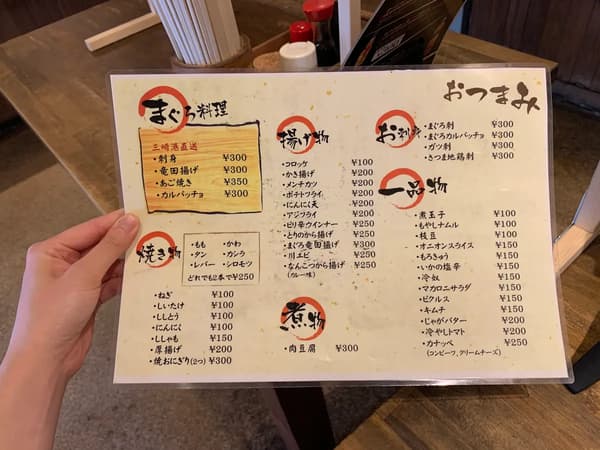 おつまみ
まぐろ料理
三崎港直送
・刺身 ¥300
・竜田揚げ ¥300
・あご焼き ¥350
・カルパッチョ ¥300
焼き物
・もも ・かわ
・タン ・カシラ
・レバー ・シロモツ
どれでも2本で¥250
・ねぎ ¥100
・しいたけ ¥100
・ししとう ¥100
・にんにく ¥100
・ししゃも ¥150
・厚揚げ ¥200
・焼おにぎり(2つ) ¥300
揚げ物
・コロッケ ¥100
・かき揚げ ¥200
・メンチカツ ¥200
・ポテトフライ ¥200
・にんにく天 ¥200
・アジフライ ¥200
・ピリ辛ウインナー ¥250
・とりのから揚げ ¥250
・まぐろ竜田揚げ ¥300
・川エビ ¥250
・なんこつから揚げ ¥250
(カレー味)
煮物
・肉豆腐 ¥300
お刺身
・まぐろ刺 ¥300
・まぐろカルパッチョ ¥300
・ガツ刺 ¥300
・さつま地鶏刺 ¥300
一品物
・煮玉子 ¥100
・もやしナムル ¥100
・枝豆 ¥100
・オニオンスライス ¥150
・もろきゅう ¥150
・いかの塩辛 ¥150
・冷奴 ¥150
・マカロニサラダ ¥150
・ピクルス ¥150
・キムチ ¥150
・じゃがバター ¥200
・冷やしトマト ¥200
・カナッペ ¥200
(コンビーフ、クリームチーズ)